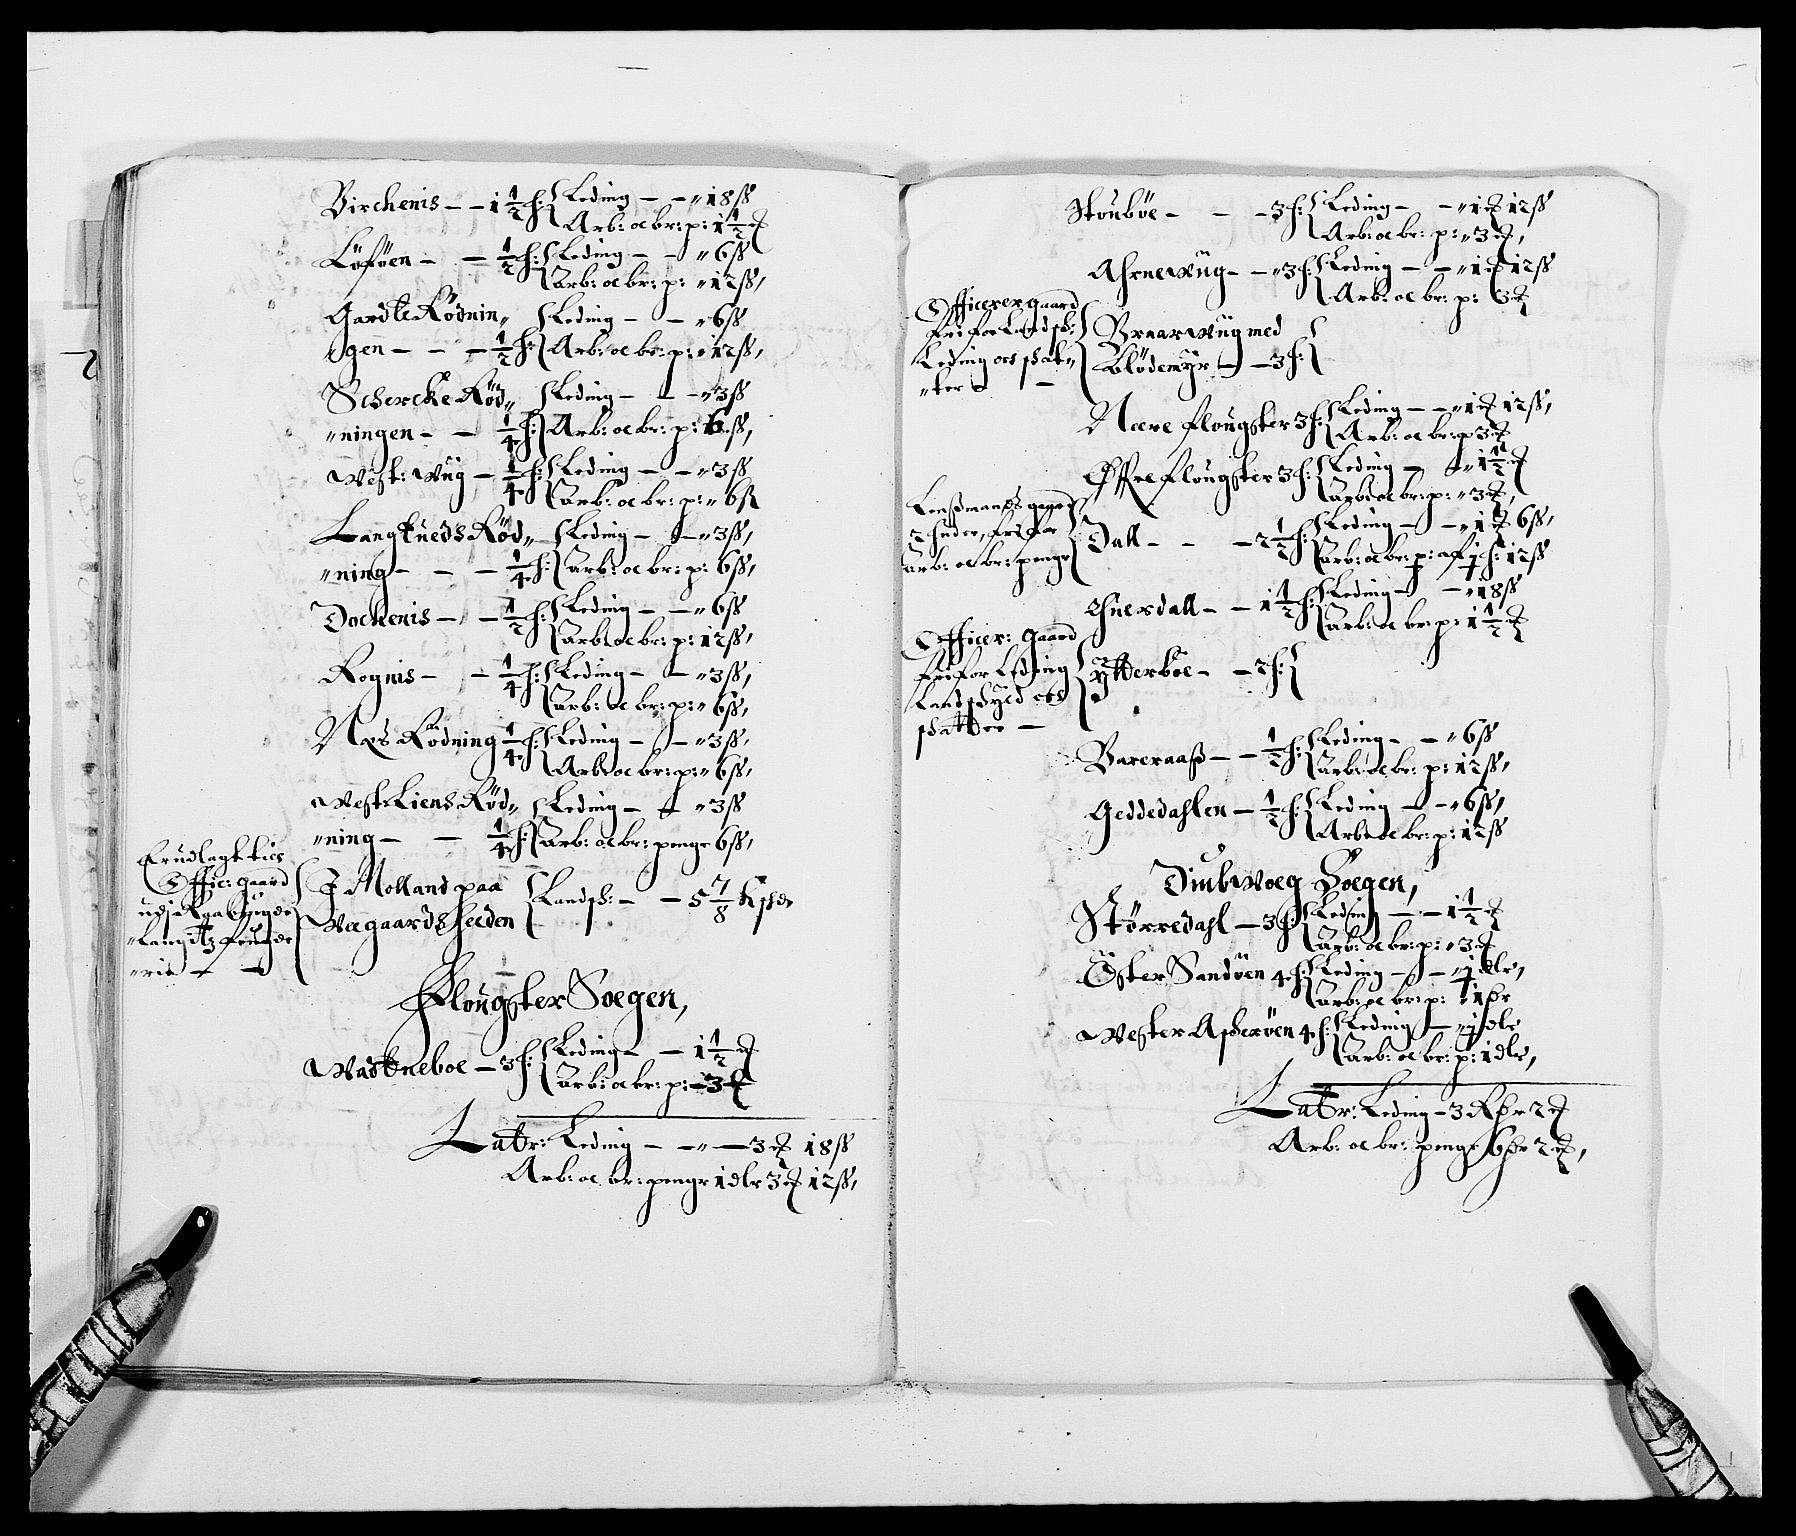 Birchenis – – 1 1/2 h: Leding – – „ 18 ß
Arb: oc br: p: 1 1/2 ort
Löföen – – 1/2 h: Leding – – „ 6 ß
arb: oc br: p: „ 12 ß,
Gardte Rödnin„ Leding – – „ 6 ß
„gen – – – 1/2 h: Arb: oc br: p: „ 12 ß,
Schercke Röd„ Leding – – – „ 3 ß
„ningen – – 1/4 h: Arb: oc br: p: 6 ß,
West: Wüg – 1/4 h: Leding – – „ 3 ß
arb: oc br: p: „ 6 ß
Langkneds Röd„ Leding – – „ 3 ß,
„ning – – – 1/4 h: arb: oc br: p: 6 ß,
Dochenis – – 1/2 h: Leding – – „ 6 ß
arb: oc br: p: 12 ß,
Rognis – – 1/4 h: Leding – – „ 3 ß,
arb: oc br: p: „ 6 ß,
Nes Rödning 1/4 h: Leding – – „ 3 ß,
Arb: oc br: p: „ 6 ß,
West: Liens Röd„ Leding – – „ 3 ß
„ning – – 1/4 h: arb: oc br: penge 6 ß,
Er udlagt til
Offic: gaard
udj
Lang
„rie – –
J Molland paa
Wegaardsheeden
Landsk: – – 5 7/8 Kshd
Flougster Soegen,
Wastneboe – 3 h: Leding – – 1 1/2 ort
arb: oc br: p: – 3 ort
Latr: Leding – – „ – 3 ort 18 ß
Arb: oc br: penge 1 dlr 3 ort 12 ß,
Stouböe – – – 3 h: Leding – – „ 1 ort 12 ß
Arb: oc br: p: „ 3 ort,
Ahrnewüg – – „ 3 h: Leding – – „ 1 ort 12 ß
Arb: oc br: p: 3 ort
Officerer gaard
fri for Landsk:
Leding oc skat„
„ter – –
Braarwüg med
Blödemÿr – – 3 h:
Nere flougster 3 h: Leding – – „ 1 ort 12 ß,
Arb: oc br: p 3 ort
Øffre flougster 3 h: Leding – – „ 1 1/2 ort
arb: oc br: p: „ 3 ort,
Lensmands gaard
2 huder, fri for
arb: oc br: penge
Dall – – – 2 1/2 h: Leding – – „ 1 ort 6 ß,
arb: oc br: p: af 1 h: 12 ß
Ehuerdall – – 1 1/2 h: Leding – – „ 18 ß
arb: oc br: p: 1 1/2 ort
Officer: gaard
fri for Leding
Landskyld oc
skatter –
Ÿtterböe – – 2 h:
Bareraaß – – 1/2 h: Leding – – „ 6 ß
arb: oc br: p: 12 ß,
Geddedahlen – 1/2 h: Leding – – „ 6 ß,
Arb: oc br: p: 12 ß
Diubwoeg Soegen,
Størredahl – 3 h: Leding – – 1 1/2 ort
arb: oc br: p: „ 3 ort
Öster Sandöen 4 h: Leding – – „ 1/2 dlr,
arb: oc br: p: 1 dr
Wester Askeröen 4 h: Leding – – „ 1/2 dlr
arb: oc br: p: 1 dlr,
Latr: Leding – 3 Rdr 2 ort
Arb: oc br: penge 6 dr 2 ort,